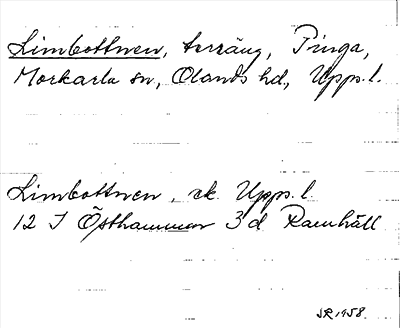 Limbottnen, terräng, Pinga,
Morkarla sn, Olands hd, Upps. l.
Limbottnen, ek. Upps. l
12 I Östhammar 3 d Ramhäll
SR 1958